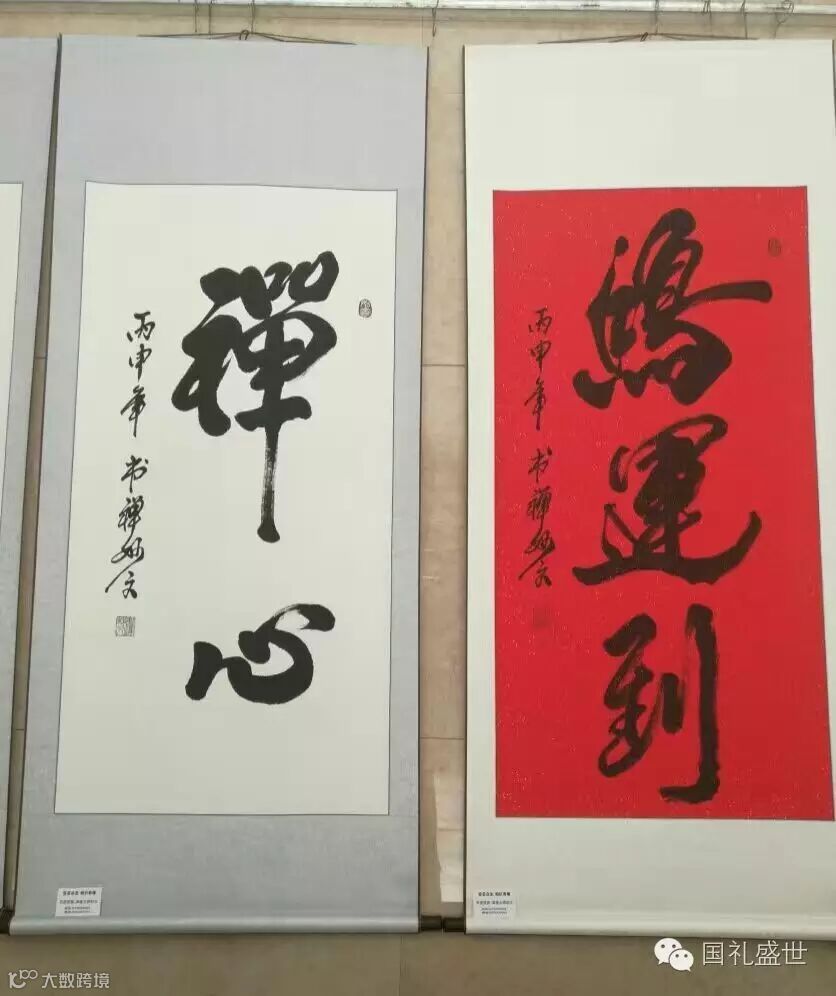 禪心
丙申年 书禪妙文
鴻運到
丙申年 书禪妙文
国礼盛世
大数跨境